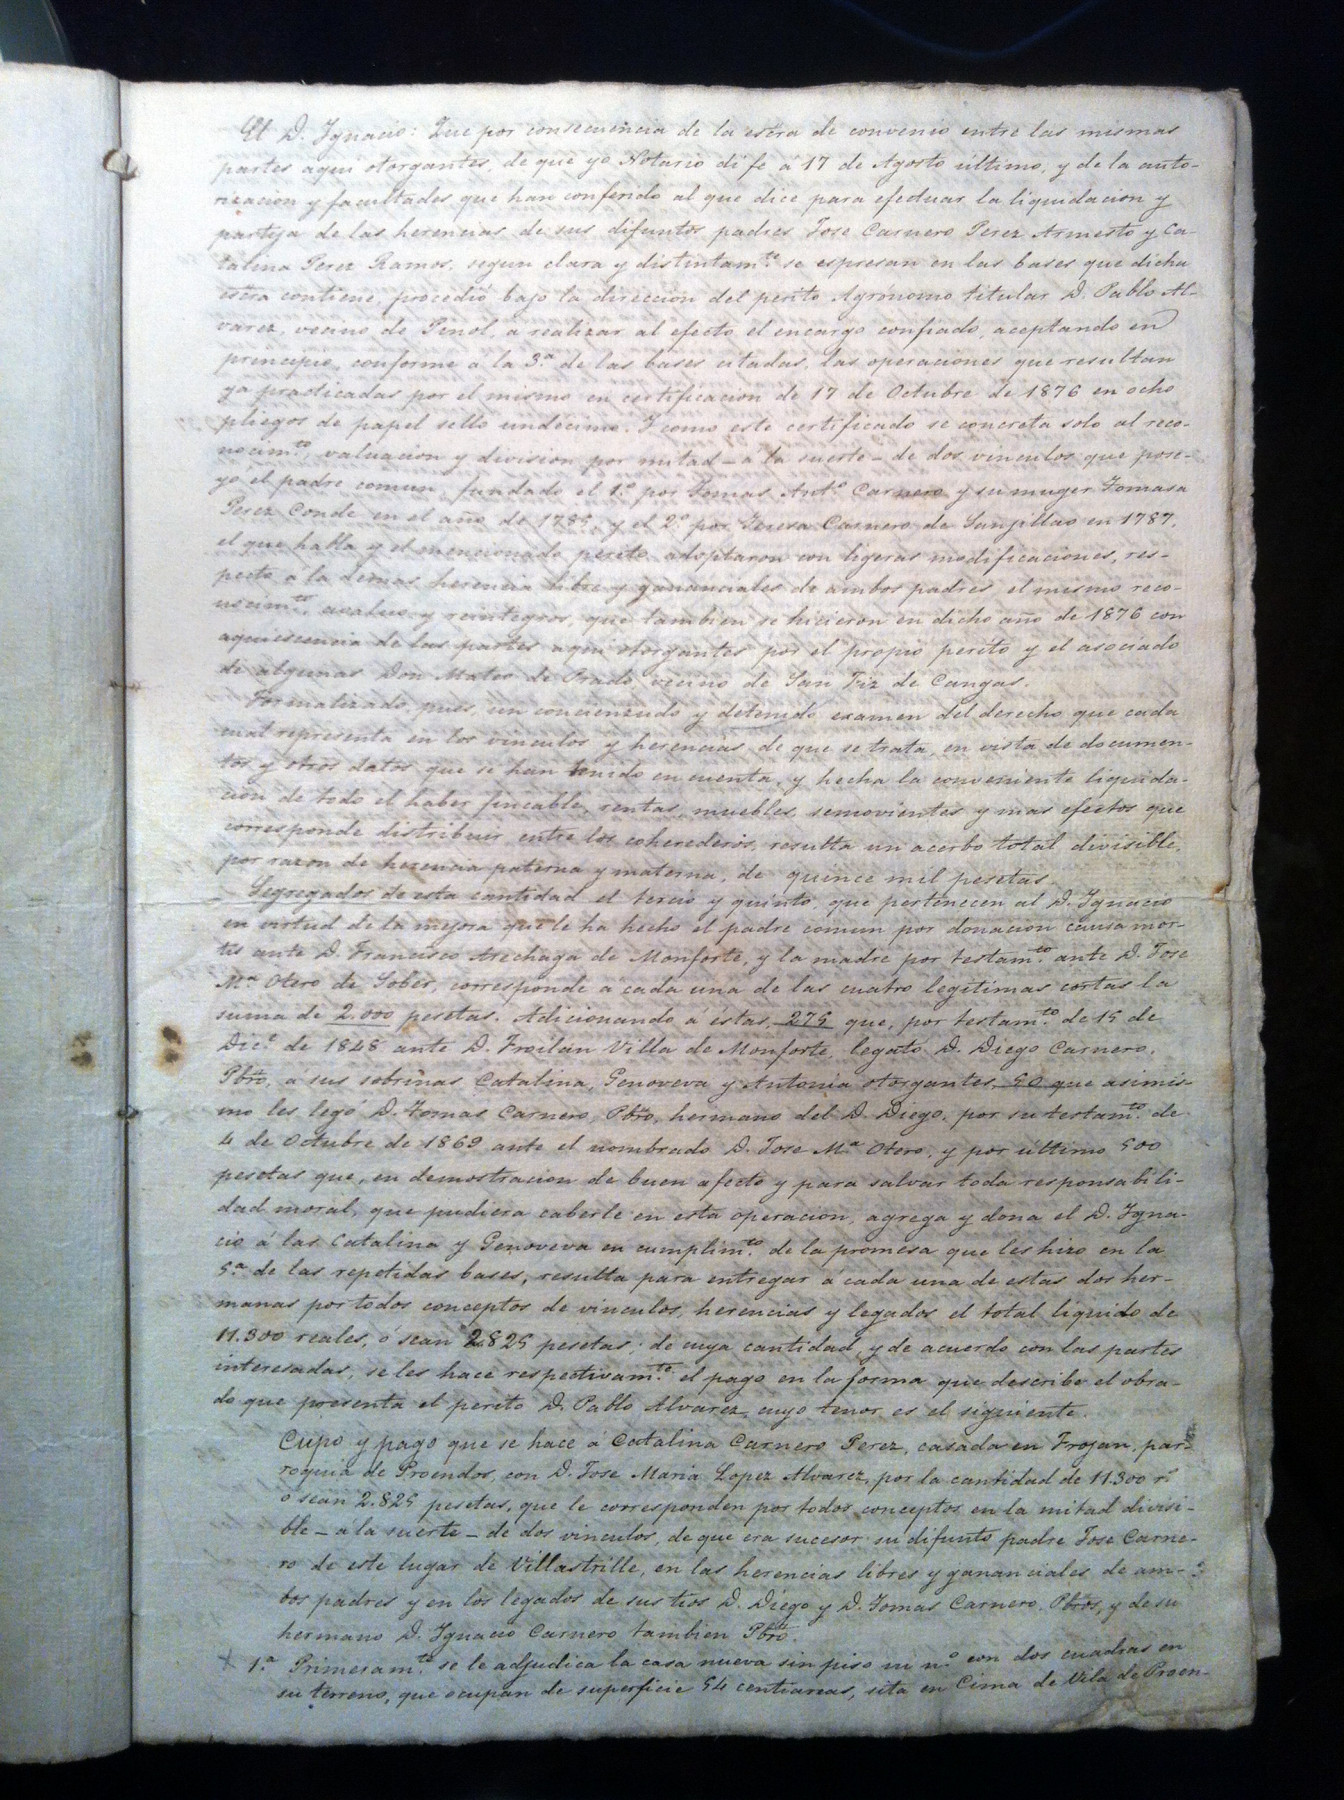 El D. Ignacio: Que por consecuencia de la escra de convenio entre las mismas
partes aqui otorgantes de que yo Notario dí fe á 17 de Agosto último, y de la auto-
rizacion y facultades que han conferido al que dice para efectuar la liquidacion y
partija de las herencias de sus difuntos padres Jose Carnero Perez Armesto y Ca-
talina Perez Ramos, segun clara y distintamte. se espresan en las bases que dicha
escra contiene, procedió bajo la direccion del perito Agrónomo titular D. Pablo Al-
varez, vecino de Pinol, a realizar al efecto el encargo confiado, aceptando en
principio, conforme á la 3.ª de las bases citadas, las operaciones que resultan
ya practicadas por el mismo en certificacion de 17 de Octubre de 1876 en ocho
pliegos de papel sello undécimo. Y como este certificado se concreta solo al reco-
nocimto, valuacion y division por mitad - á la suerte - de dos vinculos que pose-
yó el padre comun, fundado el 1.º por Tomas Antº. Carnero y su muger Tomasa
Perez Conde en el año de 1785, y el 2.º por Teresa Carnero de Sanjillao en 1787,
el que habla y el mencionado perito adoptaron con ligeras modificaciones, res-
pecto á la demas herencia libre y gananciales de ambos padres el mismo reco-
nocimto, avaluo y reintegros, que tambien se hicieron en dicho año de 1876 con
aquiescencia de las partes aqui otorgantes por el propio perito y el asociado
de algunas Don Mateo de Prado vecino de San Fiz de Cangas.
Formalizado, pues, un concienzudo y detenido examen del derecho que cada
cual representa en los vinculos y herencias de que se trata, en vista de documen-
tos y otros datos que se han tenido en cuenta, y hecha la conveniente liquida-
cion de todo el haber fincable, rentas, muebles, semovientes y mas efectos que
corresponde distribuir entre los coherederos, resulta un acerbo total divisible,
por razon de herencia paterna y materna, de quince mil pesetas.
Segregados de esta cantidad el tercio y quinto que pertenecen al D. Ignacio
en virtud de la mejora que le ha hecho el padre comun por donacion causa mor-
tis ante D. Francisco Arechaga de Monforte, y la madre por testamto. ante D. Jose
M.ª Otero de Sober, corresponde á cada una de las cuatro legítimas cortas la
suma de 2.000 pesetas. Adicionando á éstas, 275 que, por testamto. de 15 de
Dice. de 1848 ante D. Froilan Villa de Monforte, legató D. Diego Carnero,
Pbro, á sus sobrinas Catalina, Genoveva y Antonia otorgantes, 50 que asimis-
mo les legó D. Tomas Carnero, Pbro, hermano del D. Diego, por su testamto. de
4 de Octubre de 1869 ante el nombrado D. Jose M.ª Otero, y por último 500
pesetas que, en demostracion de buen afecto y para salvar toda responsabili-
dad moral, que pudiera caberle en esta operacion, agrega y dona el D. Igna-
cio á las Catalina y Genoveva en cumplimto. de la promesa que les hizo en la
5.ª de las repetidas bases, resulta para entregar á cada una de estas dos her-
manas por todos conceptos de vinculos, herencias y legados el total liquido de
11.300 reales, o sean 2825 pesetas; de cuya cantidad, y de acuerdo con las partes
interesadas, se les hace respectivamte. el pago en la forma que describe el obra-
do que presenta el perito D. Pablo Alvarez, cuyo tenor es el siguiente.
Cupo y pago que se hace á Catalina Carnero Perez, casada en Frojan, par-
roquia de Proendos, con D. Jose Maria Lopez Alvarez, por la cantidad de 11.300 rs
o sean 2.825 pesetas, que le corresponden por todos conceptos en la mitad divisi-
ble - a la suerte - de dos vinculos, de que era sucesor su difunto padre Jose Carne-
ro de este lugar de Villastrille, en las herencias libres y gananciales de am-
bos padres y en los legados de sus tios D. Diego y D. Tomas Carnero, Pbros, y de su
hermano D. Ignacio Carnero tambien Pbro.
1.ª Primeramte. se le adjudica la casa nueva sin piso ni n.º con dos cuadras en
su terreno, que ocupan de superficie 54 centiareas, sita en Cima de Vila de Proen-